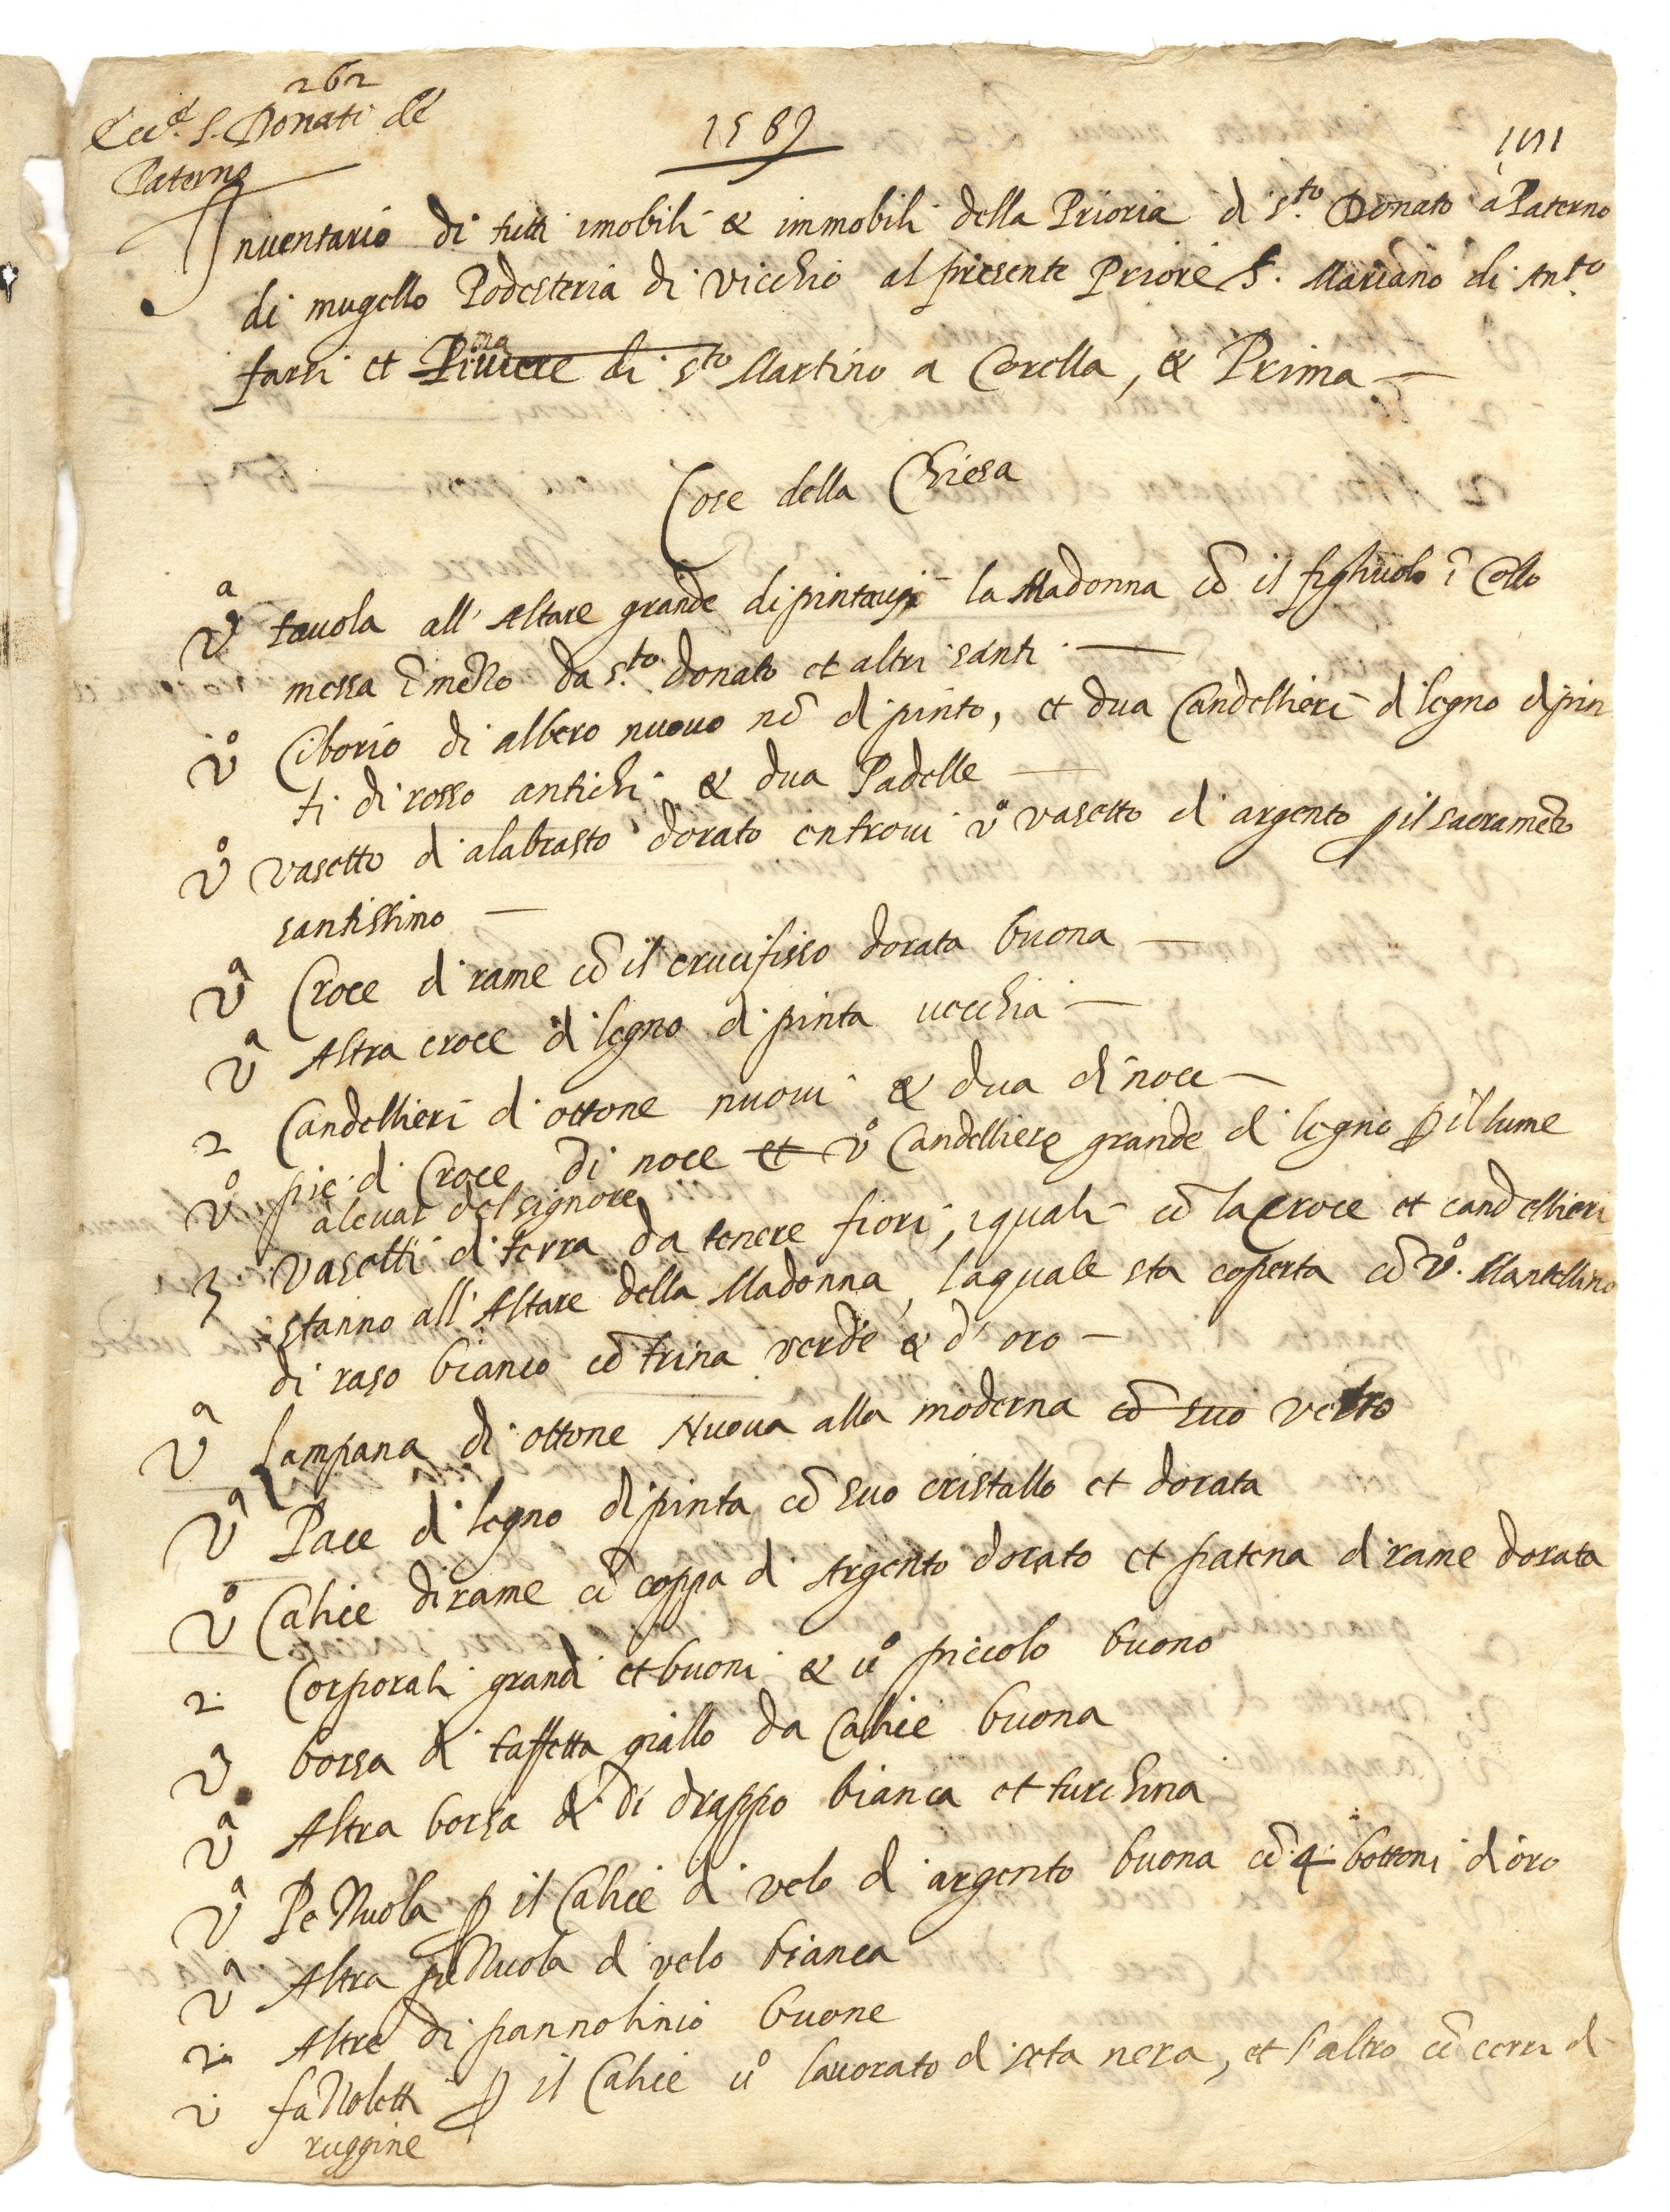 262
Ecc.ᵃ S. Donati de
Paterno
1589
Inuentario di tutti imobili & immobili della Prioria di S.to Donato a Paterno
di mugello Podesteria di Vicchio al presente Priore S. Mariano di Ant.o
farsi et Piuiere di s.to Martino a Corella, & Prima —
Cose della Chiesa
Vᵃ tauola all' Altare grande dipintaui la Madonna cō il figliuolo ī Collo
messa ī mezzo da s.to donato et altri santi —
Vº Ciborio di albero nuouo nō dipinto, et dua Candellieri di legno dipin
ti di rosso antichi & dua Padelle —
Vº Vasetto d'alabrasto dorato entroui vº vasetto di argento p il sacramēto
santissimo —
Vᵃ Croce di rame cō il crucifisso dorata buona —
Vᵃ Altra croce di legno dipinta uecchia —
2 Candellieri di ottone nuoui & dua di noce —
Vº pie di Croce di noce et vº Candelliere grande di legno p il lume
aleuar del signore
3 Vasetti di terra da tenere fiori, iquali cō la Croce et candellieri
stanno all' Altare della Madonna, laquale sta coperta cō vº. Mantellino
di raso bianco cō trina verde & d'oro —
Vᵃ Lampana di ottone Nuoua alla moderna cō suo vetro
Vᵃ Pace di legno dipinta cō suo cristallo et dorata
Vº Calice di rame cō coppa di Argento dorato et patena di rame dorata
2. Corporali grandi et buoni & uº piccolo buono
Vᵃ borsa di taffetta giallo da Calice buona
Vᵃ Altra borsa di drappo bianca et turchina
Vᵃ Pezzuola p il Calice di velo di argento buona cō 4 bottoni d'oro
Vᵃ Altra pezzuola di velo bianca
2 Altre di pannolinio buone
2 fazzoletti p il Calice uº lauorato di seta nera, et l'altro cō cerri di
ruggine